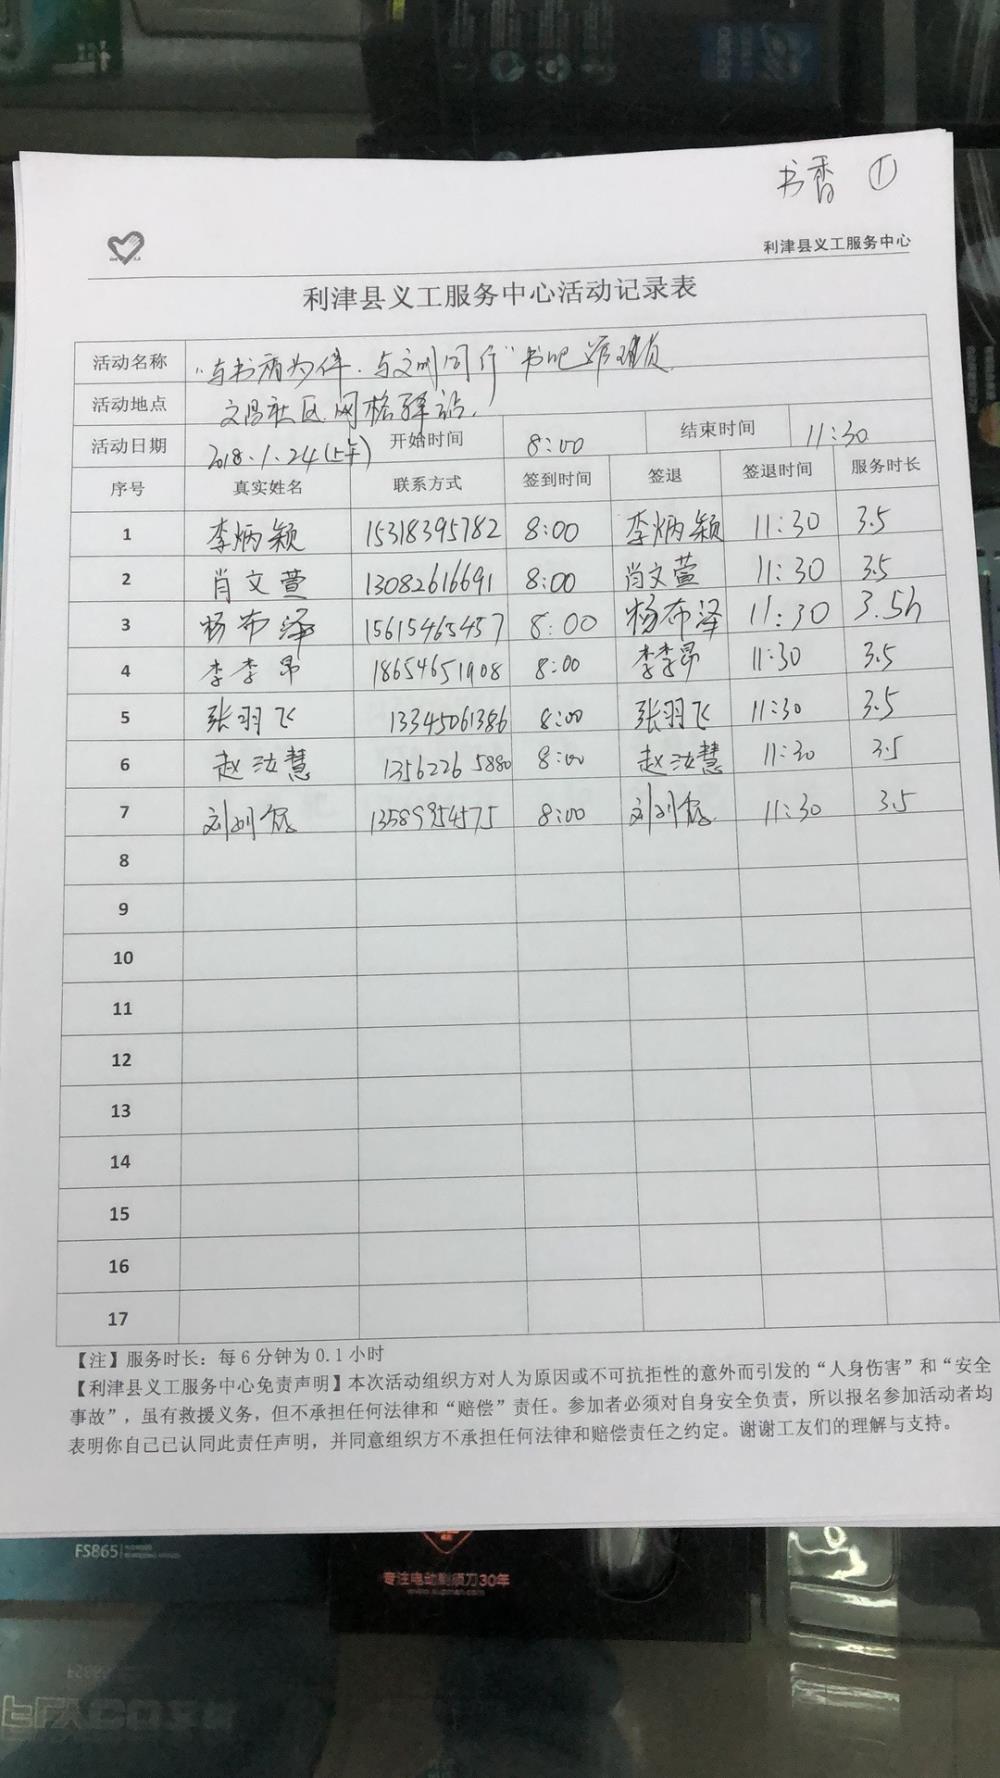 书香 ①
利津县义工服务中心
利津县义工服务中心活动记录表
活动名称 “与书香为伴.与文明同行”书吧管理员
活动地点 文昌社区网格驿站
活动日期 2018.1.24(上午) 开始时间 8:00 结束时间 11:30
序号 真实姓名 联系方式 签到时间 签退 签退时间 服务时长
1 李炳颖 15318395782 8:00 李炳颖 11:30 3.5
2 肖文萱 13082616691 8:00 肖文萱 11:30 3.5
3 杨布泽 15615465457 8:00 杨布泽 11:30 3.5h
4 李李昂 18654651908 8:00 李李昂 11:30 3.5
5 张羽飞 13345061386 8:00 张羽飞 11:30 3.5
6 赵汝慧 13562265880 8:00 赵汝慧 11:30 3.5
7 13589954575 8:00 11:30 3.5
8
9
10
11
12
13
14
15
16
17
【注】服务时长：每6分钟为0.1小时
【利津县义工服务中心免责声明】本次活动组织方对人为原因或不可抗拒性的意外而引发的“人身伤害”和“安全
事故”，虽有救援义务，但不承担任何法律和“赔偿”责任。参加者必须对自身安全负责，所以报名参加活动者均
表明你自己已认同此责任声明，并同意组织方不承担任何法律和赔偿责任之约定。谢谢工友们的理解与支持。
FS865
专注电动剃须刀30年